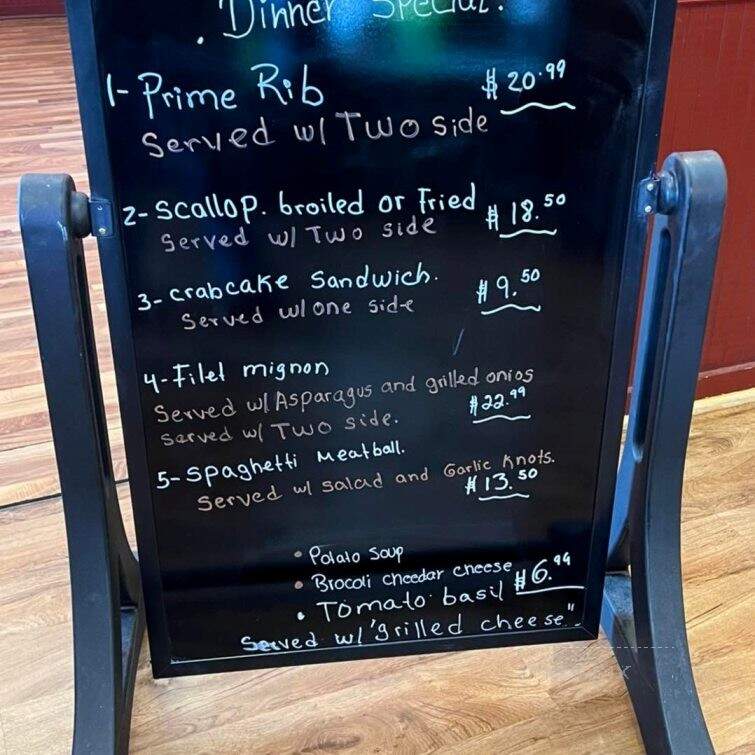 . Dinner Special.
1- Prime Rib $ 20.99
Served w/ Two side
2- Scallop. broiled or Fried $ 18.50
Served w/ Two side
3- crabcake Sandwich. $ 9.50
Served w/ one side
4- Filet mignon
Served w/ Asparagus and grilled onios
Served w/ Two side. $22.99
5- Spaghetti Meatball.
Served w/ salad and Garlic Knots.
$13.50
• Potato Soup
• Brocoli cheedar cheese $6.99
• Tomato basil
Served w/ "grilled cheese".